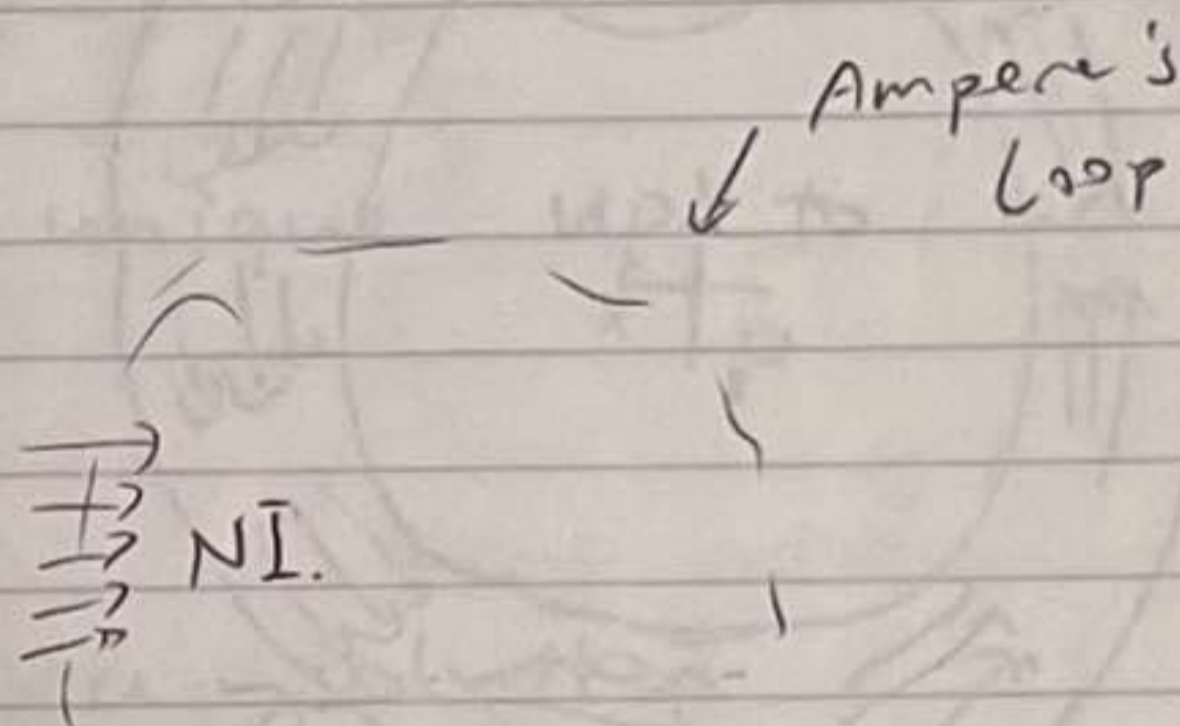 Ampere's
Loop
NI.